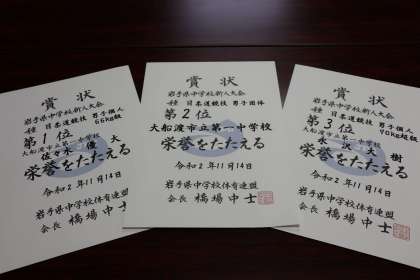 賞状
岩手県中学校新人大会
種目 柔道競技 男子個人
66kg級
第1位
大船渡市立第一中学校
佐々木 優大
栄誉をたたえる
令和2年11月14日
岩手県中学校体育連盟
会長 橋場中士
賞状
岩手県中学校新人大会
種目 柔道競技 男子団体
第2位
大船渡市立第一中学校
栄誉をたたえる
令和2年11月14日
岩手県中学校体育連盟
会長 橋場中士
賞状
岩手県中学校新人大会
種目 柔道競技 男子個人
90kg超級
第3位
大船渡市立第一中学校
永沢 大樹
栄誉をたたえる
令和2年11月14日
岩手県中学校体育連盟
会長 橋場中士